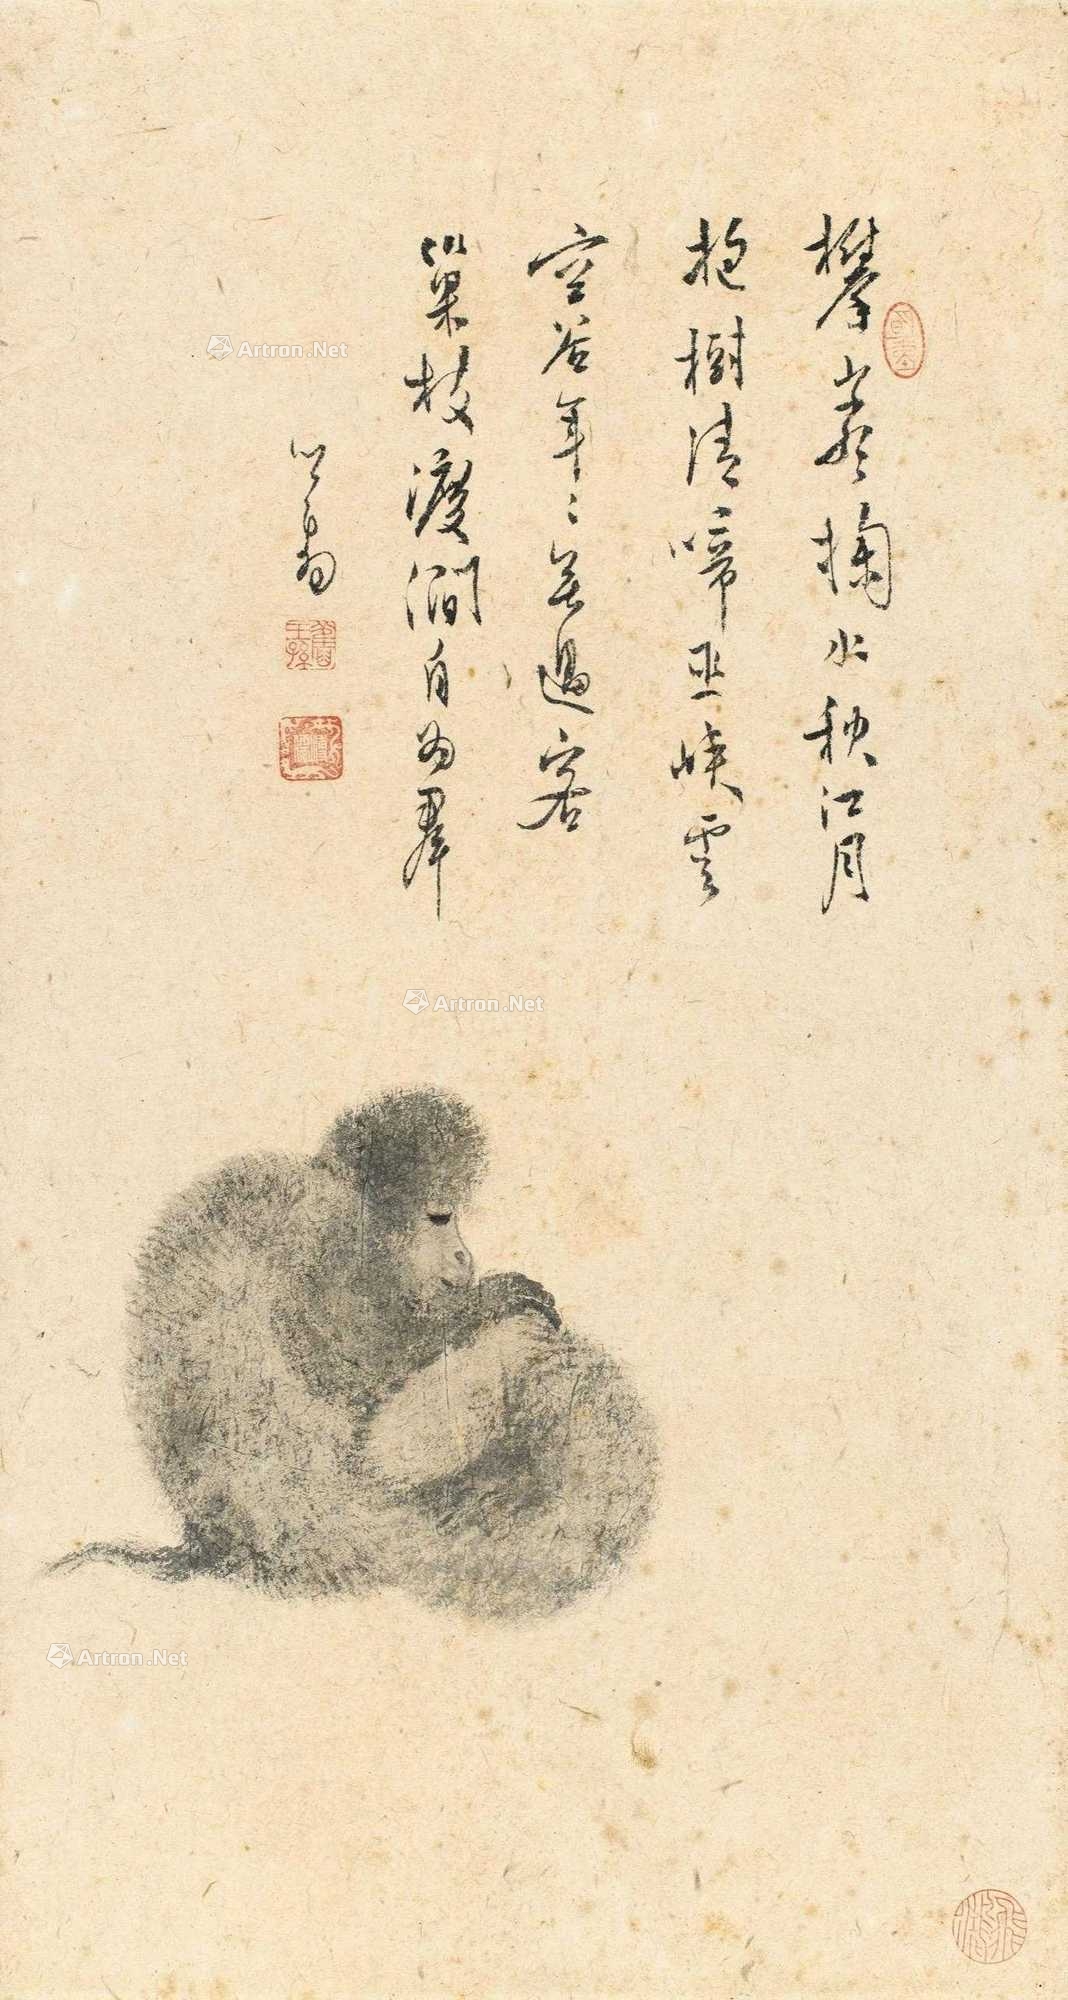 攀崖掬水秋江月
抱樹清啼巫峽雲
空谷年〻無過客
巢枝渡澗自為羣
心畬
舊王孫
Artron.Net
Artron.Net
Artron.Net